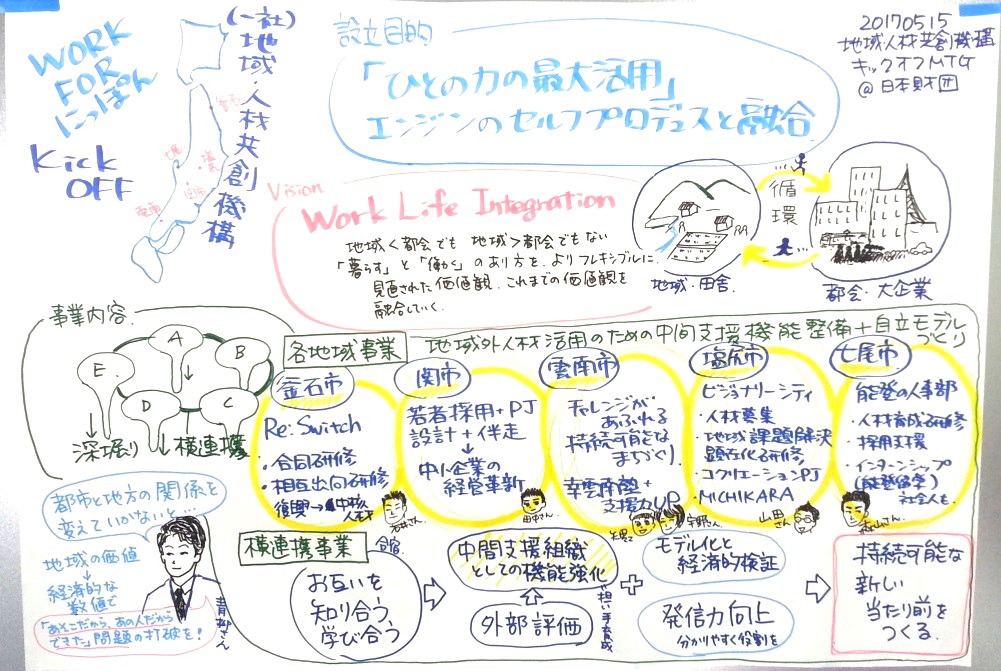 WORK
FOR
にっぽん
Kick
OFF
(一社)地域・人材共創機構
釜石
設立目的
「ひとの力の最大活用」
エンジンのセルフプロデュースと融合
20170515
地域人材共創機構
キックオフMTG
@日本財団
Vision
Work Life Integration
地域<都会でも 地域>都会でもない
「暮らす」と「働く」のあり方を、よりフレキシブルに
見直された価値観。これまでの価値観を
融合していく。
循環
地域・田舎
都会・大企業
事業内容
A
B
C
D
E
深堀り
横連携
各地域事業
地域外人材活用のための中間支援機能整備+自立モデル
づくり
釜石市
Re:Switch
・合同研修
・相互出向研修
復興→中核
人材
石井さん
関市
若者採用+PJ
設計+伴走
中小企業の
経営革新
田中さん
雲南市
チャレンジが
あふれる
持続可能な
まちづくり
幸雲南塾+
支援力UP
矢野さん
塩尻市
ビジョナリーシティ
・人材募集
・地域課題解決
顕在化研修
・コクリエーションPJ
・MICHIKARA
山田さん
七尾市
能登の人事部
・人材育成研修
・採用支援
・インターンシップ
(能登留学)
社会人も
森山さん
都市と地方の関係を
変えていかないと…
地域の価値
経済的な
数値で
「あそこだから、あの人だから
できた」問題の打破を!
青柳さん
横連携事業
合宿
お互いを
知り合う
学び合う
中間支援組織
としての機能強化
や担い手育成
外部評価
モデル化と
経済的検証
発信力向上
分かりやすく役割を
持続可能な
新しい
当たり前を
つくる